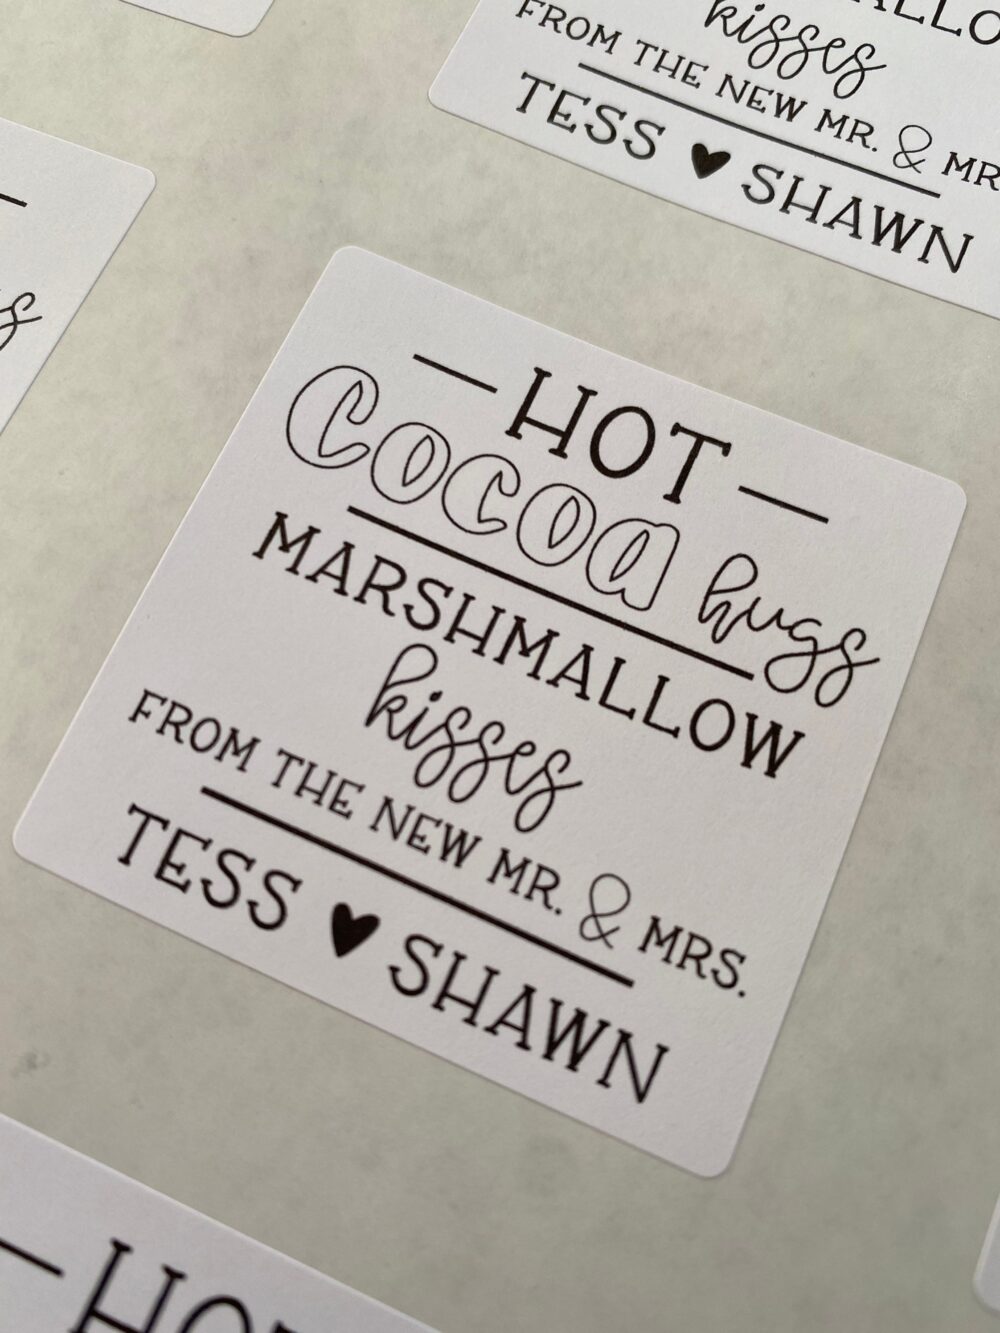 kisses
FROM THE NEW MR. &
TESS ♥ SHAWN
HOT
Cocoa hugs
MARSHMALLOW
kisses
FROM THE NEW MR. & MRS.
TESS ♥ SHAWN
HOT